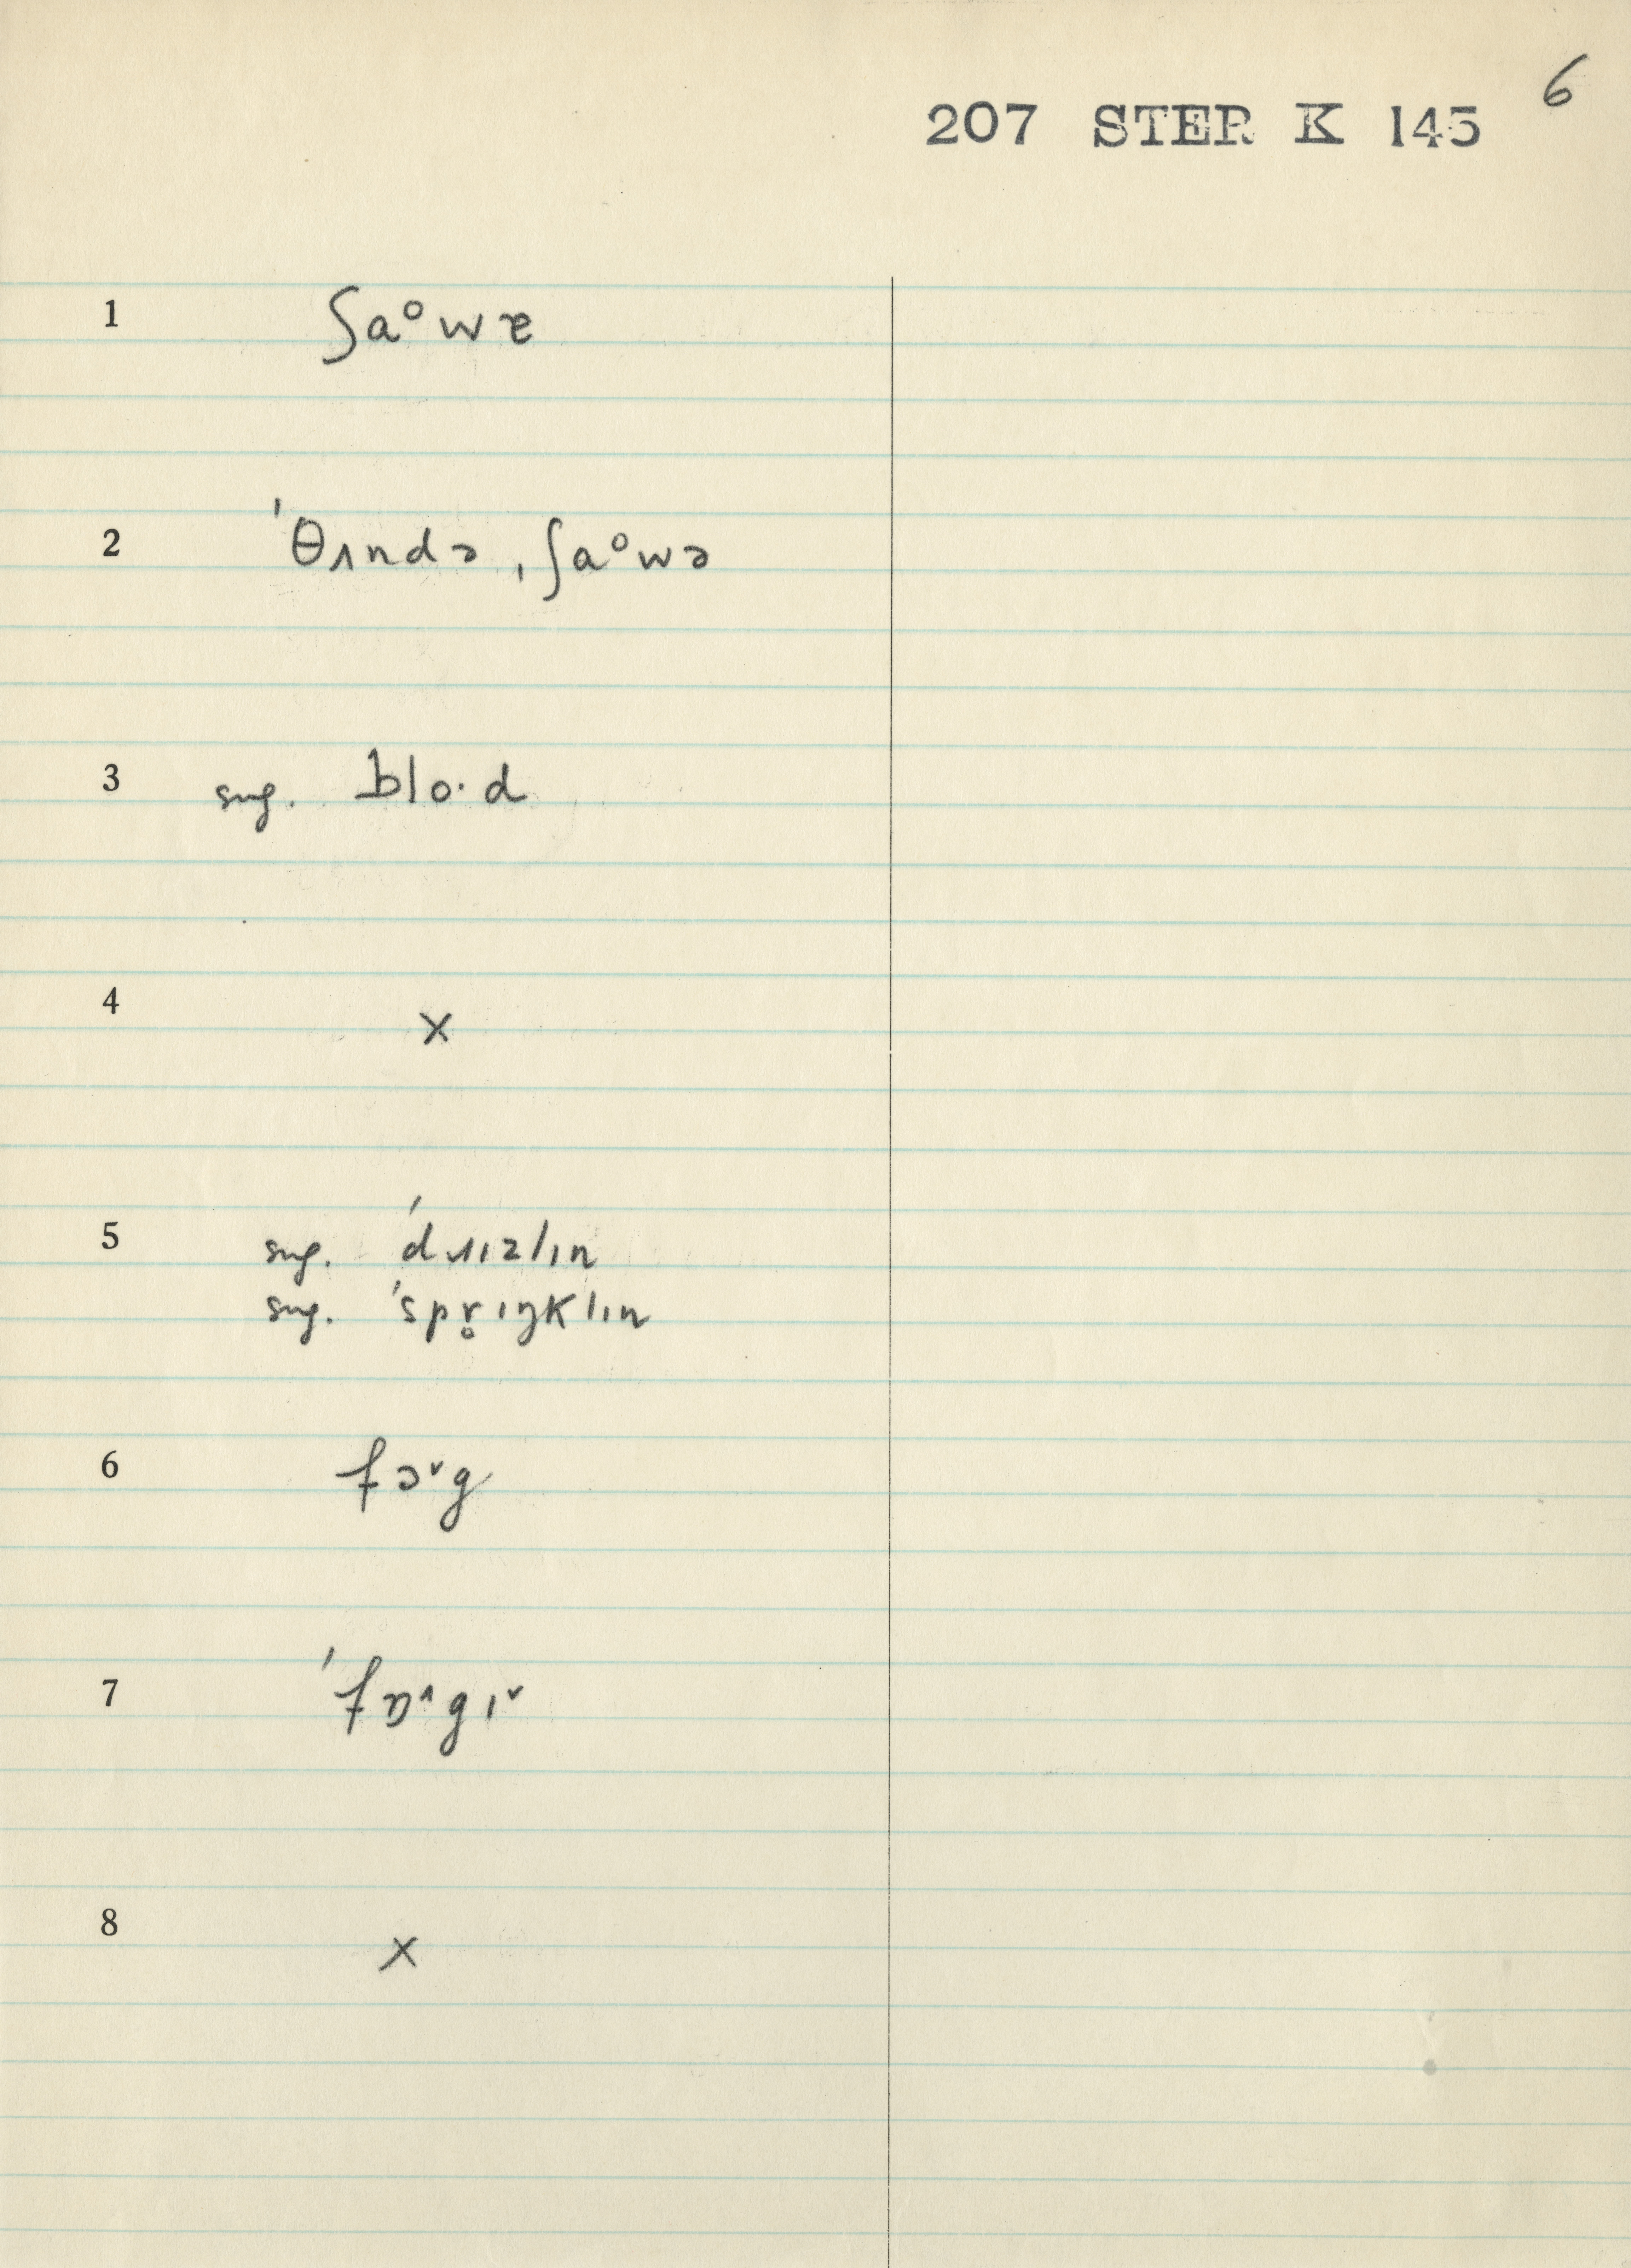 6
207 STER K 145
1 ʃaᵒwɚ
2 ˈθʌndə ˌʃaᵒwə
3 sug. blo·d
4 x
5 sug. ˈdɹɪzlɪn
sug. ˈspr̥ɪŋklɪn
6 fɔ˅g
7 ˈfɒ˄gɪ˅
8 x